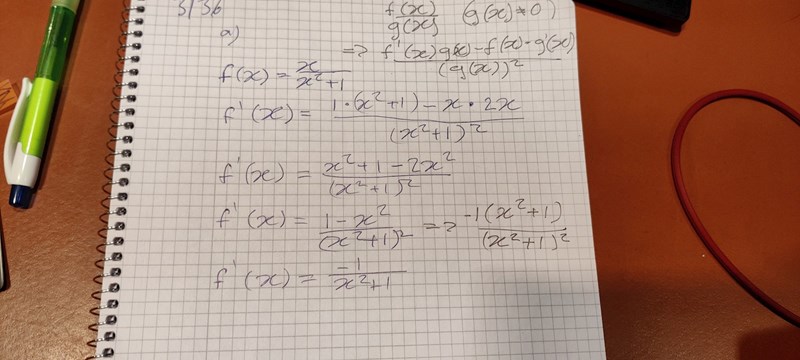 3/36
f(x)/g(x) (g(x)≠0)
a) => f'(x)g(x)-f(x)·g'(x)/(g(x))²
f(x) = x/x²+1
f'(x) = 1·(x²+1)-x·2x/(x²+1)²
f'(x) = x²+1-2x²/(x²+1)²
f'(x) = 1-x²/(x²+1)² => -1(x²+1)/(x²+1)²
f'(x) = -1/x²+1